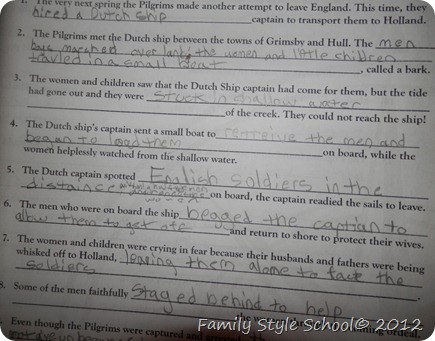 1. The very next spring the Pilgrims made another attempt to leave England. This time, they
hired a Dutch ship captain to transport them to Holland.
2. The Pilgrims met the Dutch ship between the towns of Grimsby and Hull. The men
boys marched over land; the women and little children
travled in a small boat, called a bark.
3. The women and children saw that the Dutch Ship captain had come for them, but the tide
had gone out and they were stuck in shallow water
of the creek. They could not reach the ship!
4. The Dutch ship's captain sent a small boat to retreive the men and
began to load them on board, while the
women helplessly watched from the shallow water.
5. The Dutch captain spotted English soldiers in the
distaince on board, the captain readied the sails to leave.
6. The men who were on board the ship begged the captian to
allow them to get off and return to shore to protect their wives.
7. The women and children were crying in fear because their husbands and fathers were being
whisked off to Holland, leaving them alone to face the
soldiers
8. Some of men faithfully stayed behind to help
the ordeal.
Even though the Pilgrims were captured and
Family Style School© 2012